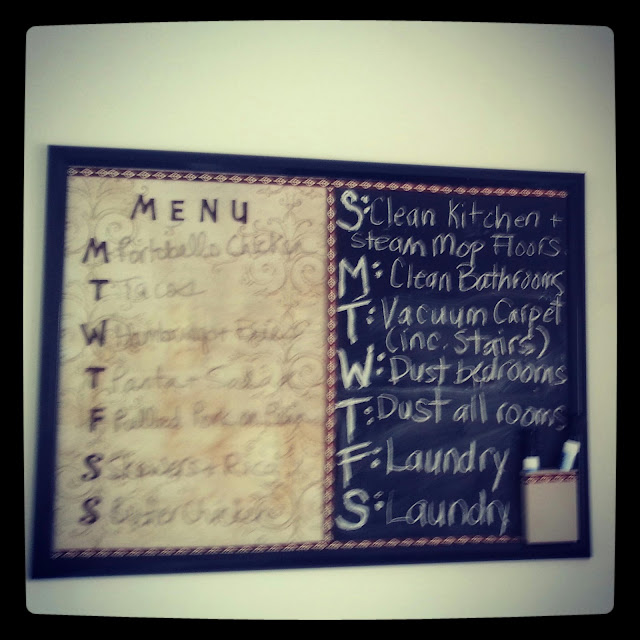 MENU
M Portobello Chicken
T Tacos
W
T Pasta + Salad
F Pulled Pork
S Skewers + Rice
S Chicken
S: Clean Kitchen +
steam Mop Floors
M: Clean Bathrooms
T: Vacuum Carpet
(inc. Stairs)
W: Dust bedrooms
T: Dust all rooms
F: Laundry
S: Laundry